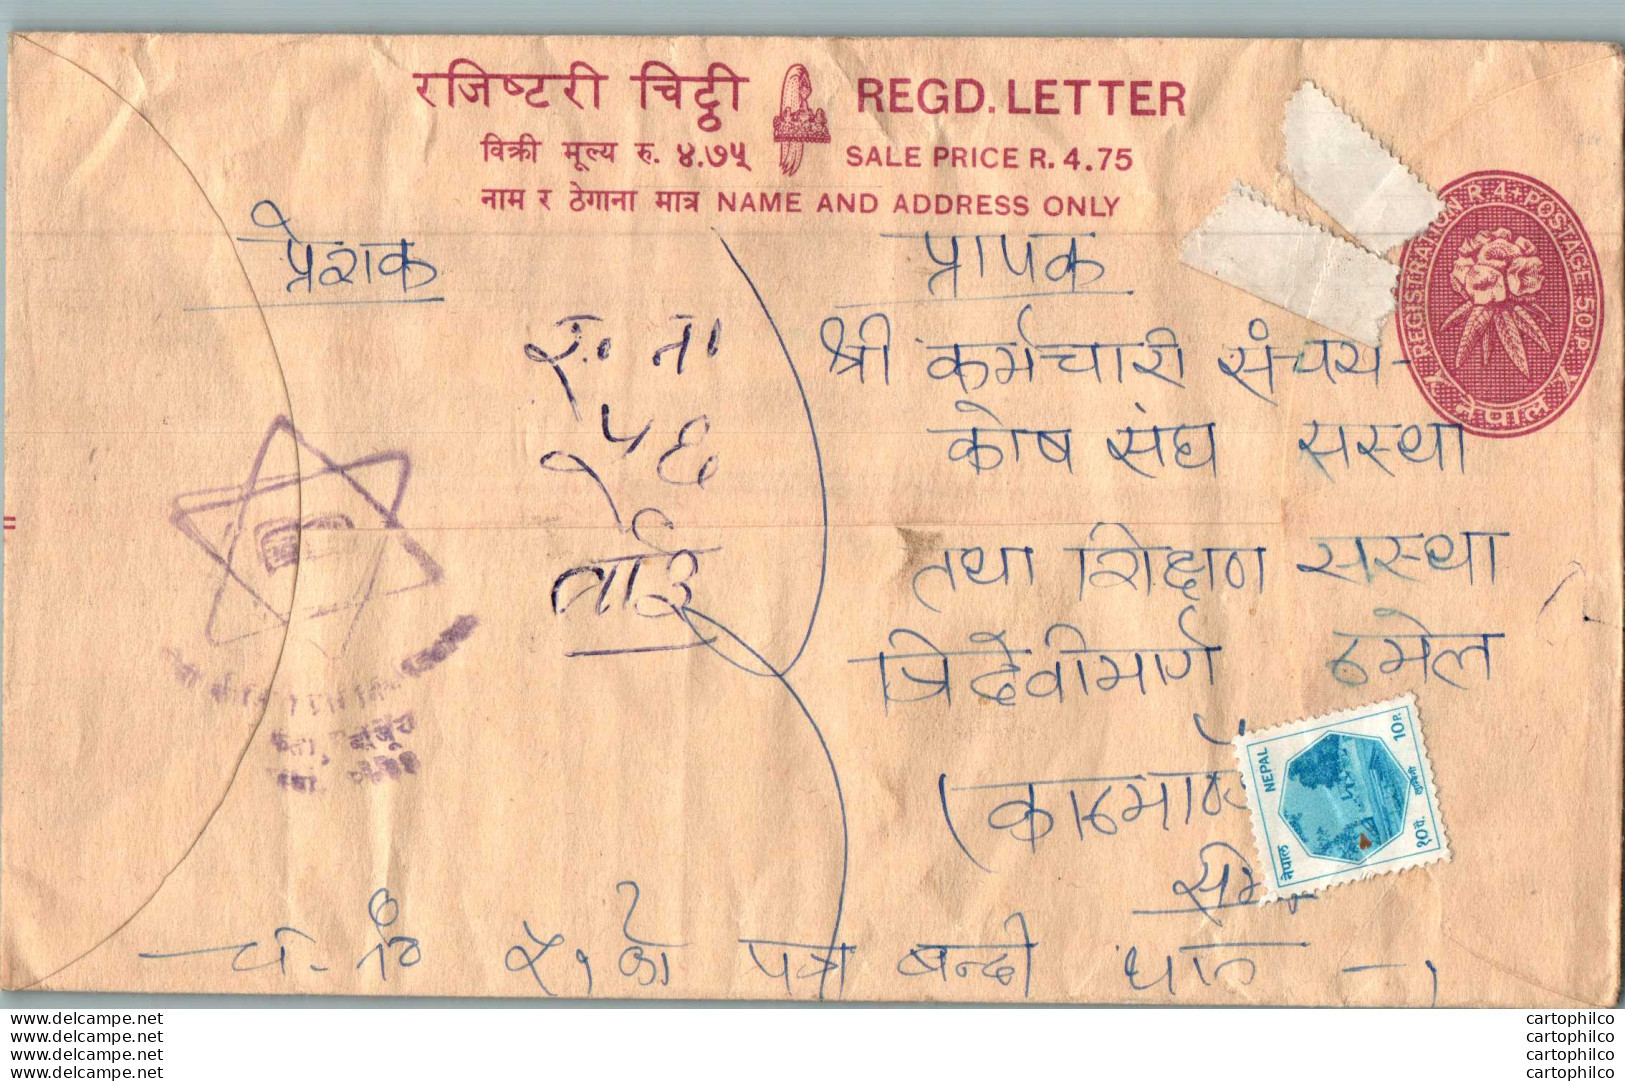 रजिष्टरी चिट्ठी REGD. LETTER
विक्री मूल्य रु. ४.७५ SALE PRICE R. 4.75
नाम र ठेगाना मात्र NAME AND ADDRESS ONLY
REGISTRATION R 4 + POSTAGE 50 P.
नेपाल
प्रेशक
रु. ता
५६
प्रापक
श्री कर्मचारी संचय-
कोष संघ सस्था
तथा शिक्षण सस्था
त्रिदेवीमार्ग ठमेल
(काठमाण्
NEPAL 10 P.
नेपाल १० पै. लुम्बिनी
च. नं ५१ को पत्र बन्दी थान - १
www.delcampe.net
www.delcampe.net
www.delcampe.net
www.delcampe.net
cartophilco
cartophilco
cartophilco
cartophilco